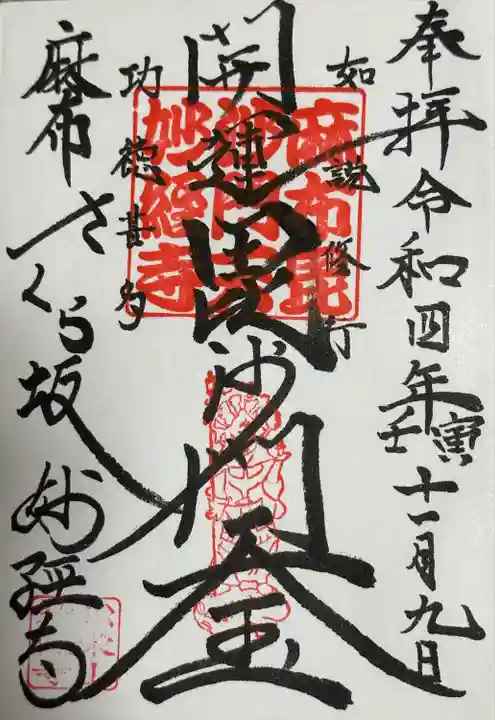 奉拝 令和四年 壬寅 十一月九日
如説修行
開運毘沙門天王
功徳甚多
麻布さくら坂 妙経寺
麻布毘
沙門天
妙経寺